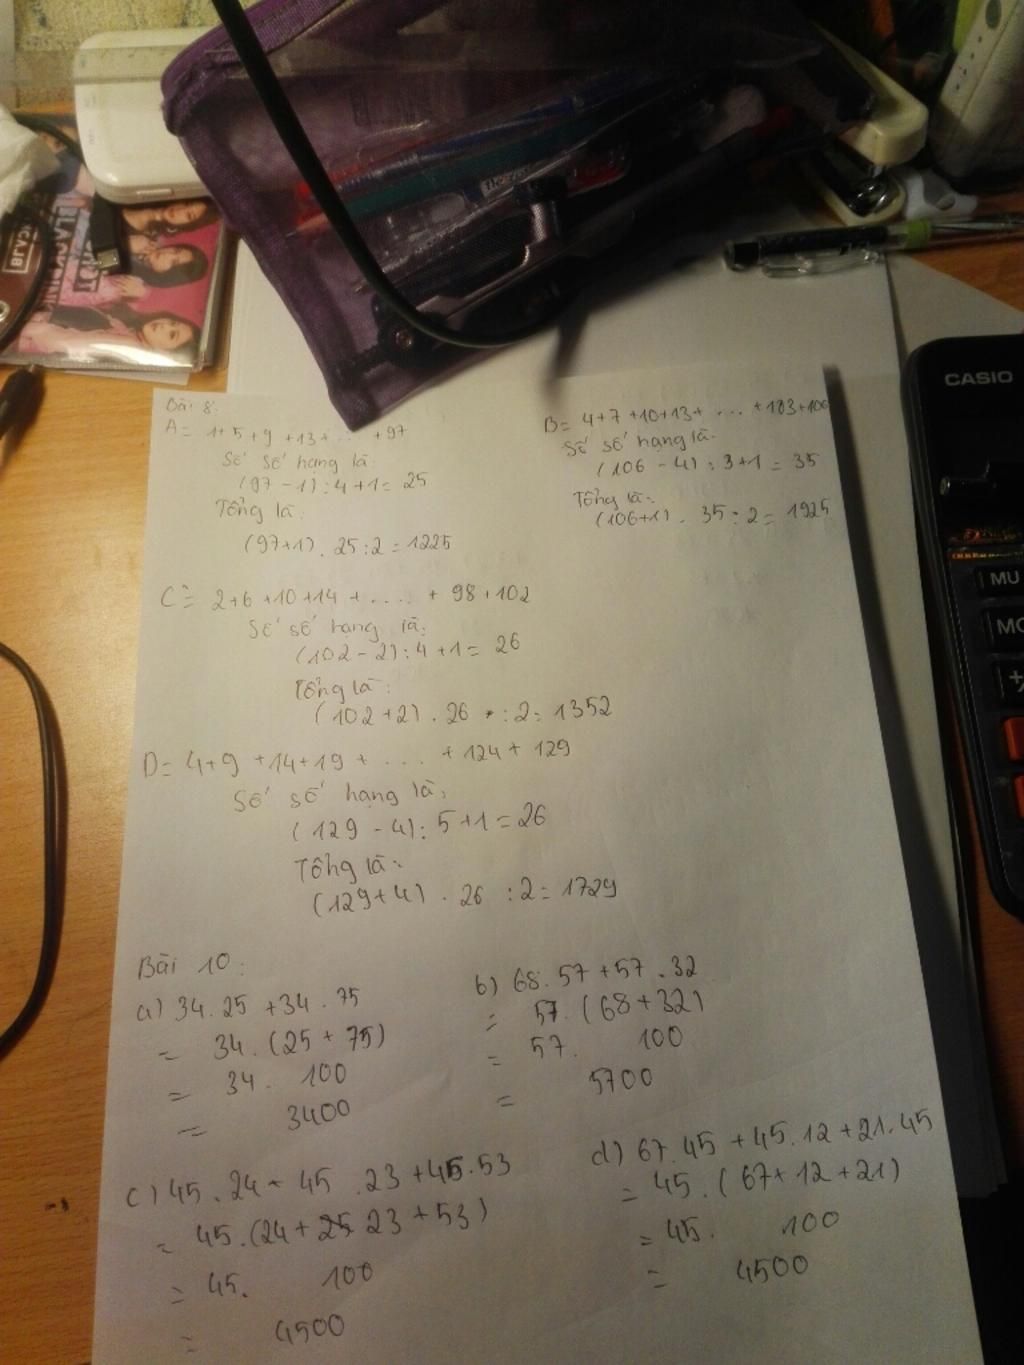 BLACKPINK
CASIO
MU
Bài 8:
A = 1+5+9+13+ ... +97
Số số hạng là:
(97-1):4+1= 25
Tổng là:
(97+1). 25:2 = 1225
B= 4+7+10+13+ ... +103+106
Số số hạng là:
(106-4):3+1 = 35
Tổng là:
(106+1). 35:2 = 1925
C = 2+6+10+14+ .... + 98+102
Số số hạng là:
(102-2):4+1= 26
Tổng là:
(102+2). 26 :2= 1352
D= 4+9+14+19+ ... +124+129
Số số hạng là:
(129-4):5+1=26
Tổng là:
(129+4). 26 :2=1729
Bài 10:
a) 34.25+34.75
= 34.(25+75)
= 34. 100
= 3400
b) 68.57+57.32
= 57.(68+32)
= 57. 100
= 5700
c) 45.24+45.23+45.53
= 45.(24+23+53)
= 45. 100
= 4500
d) 67.45+45.12+21.45
= 45.(67+12+21)
= 45. 100
= 4500